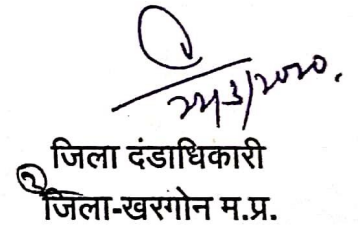 22/3/2020.
जिला दंडाधिकारी
जिला-खरगोन म.प्र.